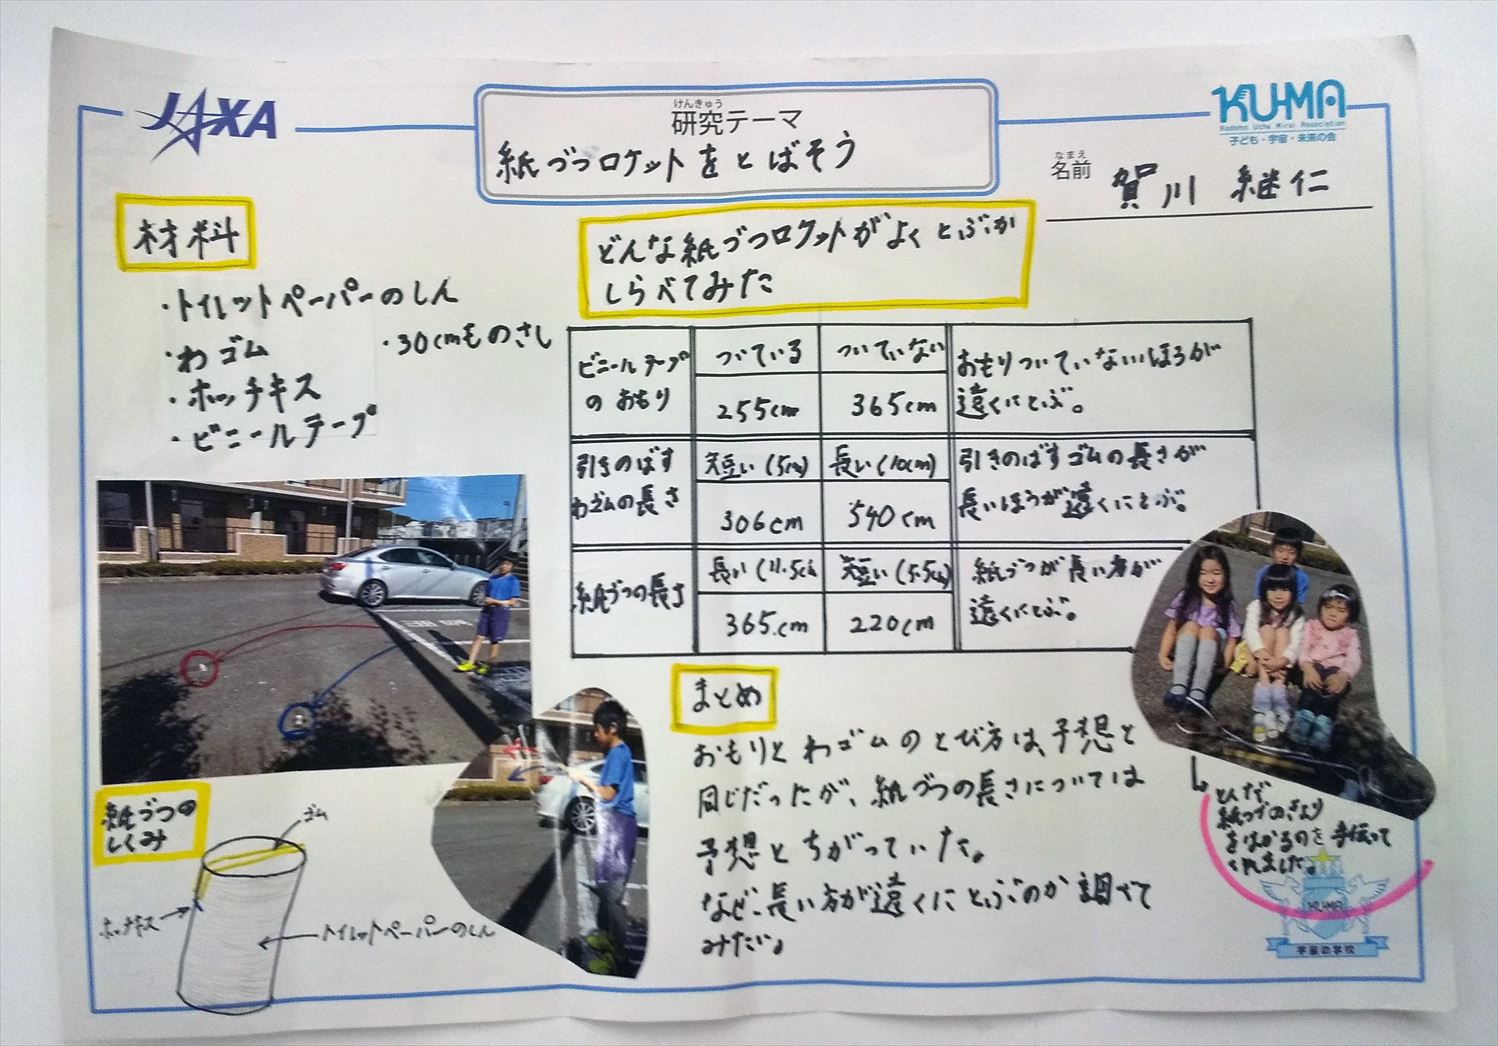 JAXA
けんきゅう
研究テーマ
紙づつロケットをとばそう
KU-MA
Kodomo Uchu Mirai Association
子ども・宇宙・未来の会
なまえ
名前
賀川 継仁
材料
・トイレットペーパーのしん
・わゴム
・30cmものさし
・ホッチキス
・ビニールテープ
どんな紙づつロケットがよくとぶか
しらべてみた
ビニールテープ
のおもり
ついている
ついていない
おもりついていないほうが
遠くにとぶ。
255cm
365cm
引きのばす
わゴムの長さ
短い(5cm)
長い(10cm)
引きのばすゴムの長さが
長いほうが遠くにとぶ。
306cm
540cm
紙づつの長さ
長い(11.5cm
短い(5.5cm)
紙づつが長い方が
遠くにとぶ。
365cm
220cm
紙づつの
しくみ
ゴム
ホッチキス
トイレットペーパーのしん
まとめ
おもりとわゴムのとび方は、予想と
同じだったが、紙づつの長さについては
予想とちがっていた。
なぜ、長い方が遠くにとぶのか調べて
みたい。
紙づつのきょり
をはかるのを手伝って
くれました。
KU-MA
宇宙の学校